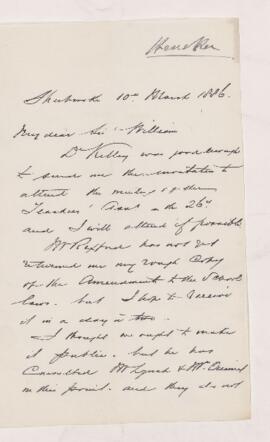 Heneker
Sherbrooke 10th March 1886.
My dear Sir William
Dr Kelley was good enough
to send me the invitation to
attend the meeting of the
Teachers' Assn on the 26th
and I will attend if possible
Mr Rexford has not yet
returned me my rough copy
of the Amendments to the School
laws. but I hope to receive
it in a day or two.
I thought we ought to make
it public. but he has
Consulted Mr Lynch &
on this point. and they do not